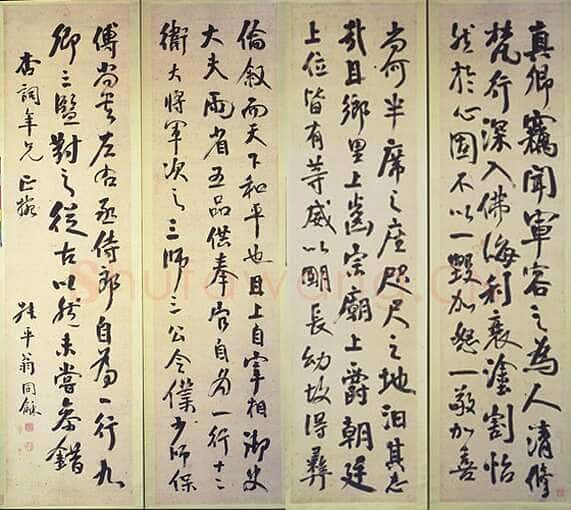 真卿竊聞軍容之為人清修
梵行深入佛海利衰塗割怡
然於心固不以一毀加怒一敬加喜
尚何半席之座咫尺之地汩其志
哉且鄉里上齒宗廟上爵朝廷
上位皆有等威以明長幼故得彝
倫敘而天下和平也且上自宰相御史
大夫兩省五品供奉官自為一行十二
衛大將軍次之三師三公令僕少師保
傅尚書左右丞侍郎自為一行九
卿三監對之從古以然未嘗參錯
詞年兄正
叔平翁同龢